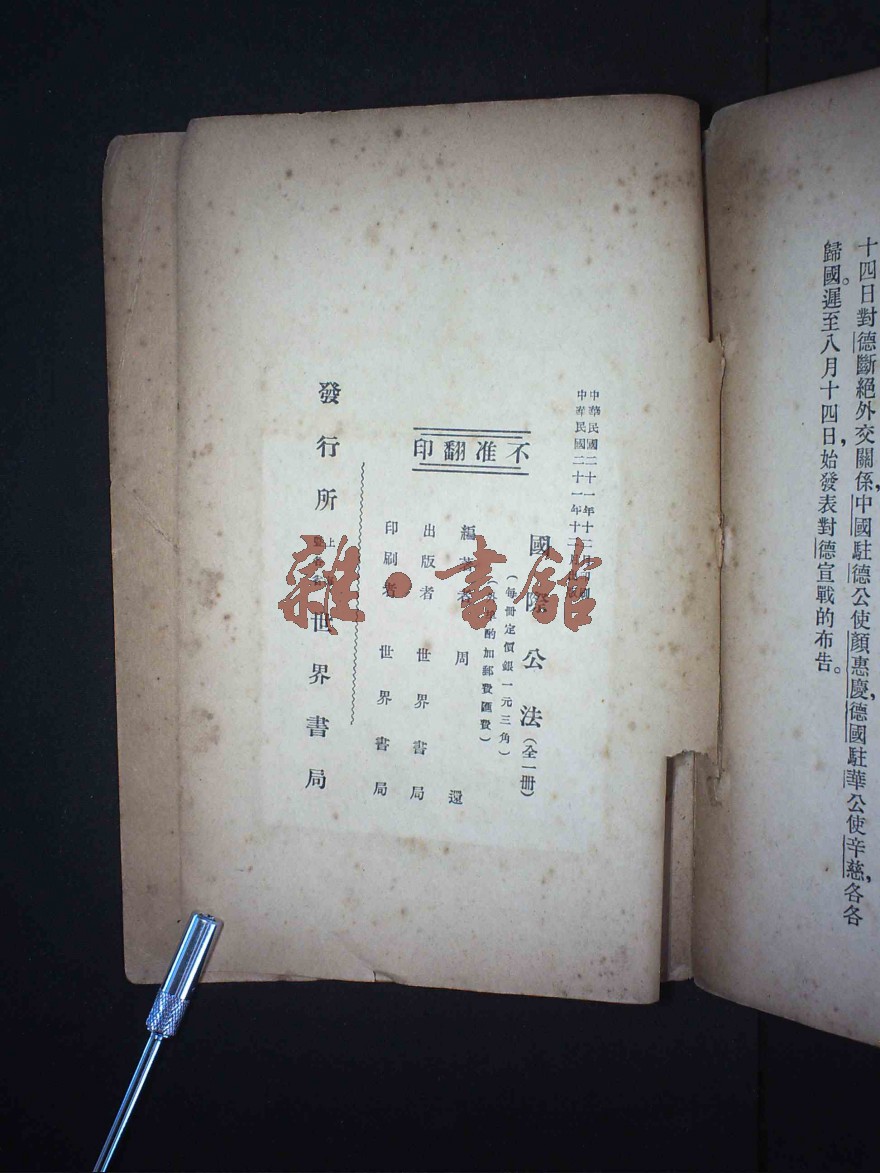 十四日對德斷絕外交關係，中國駐德公使顏惠慶，德國駐華公使辛慈，各各
歸國。遲至八月十四日，始發表對德宣戰的布告。
中華民國二十一年十二月印刷
中華民國二十一年十二月
不准翻印
國際公法（全一冊）
（每冊定價銀一元三角）
酌加郵費匯費）
編著者 周還
出版者 世界書局
印刷者 世界書局
發行所 上 世界書局
雜·書館